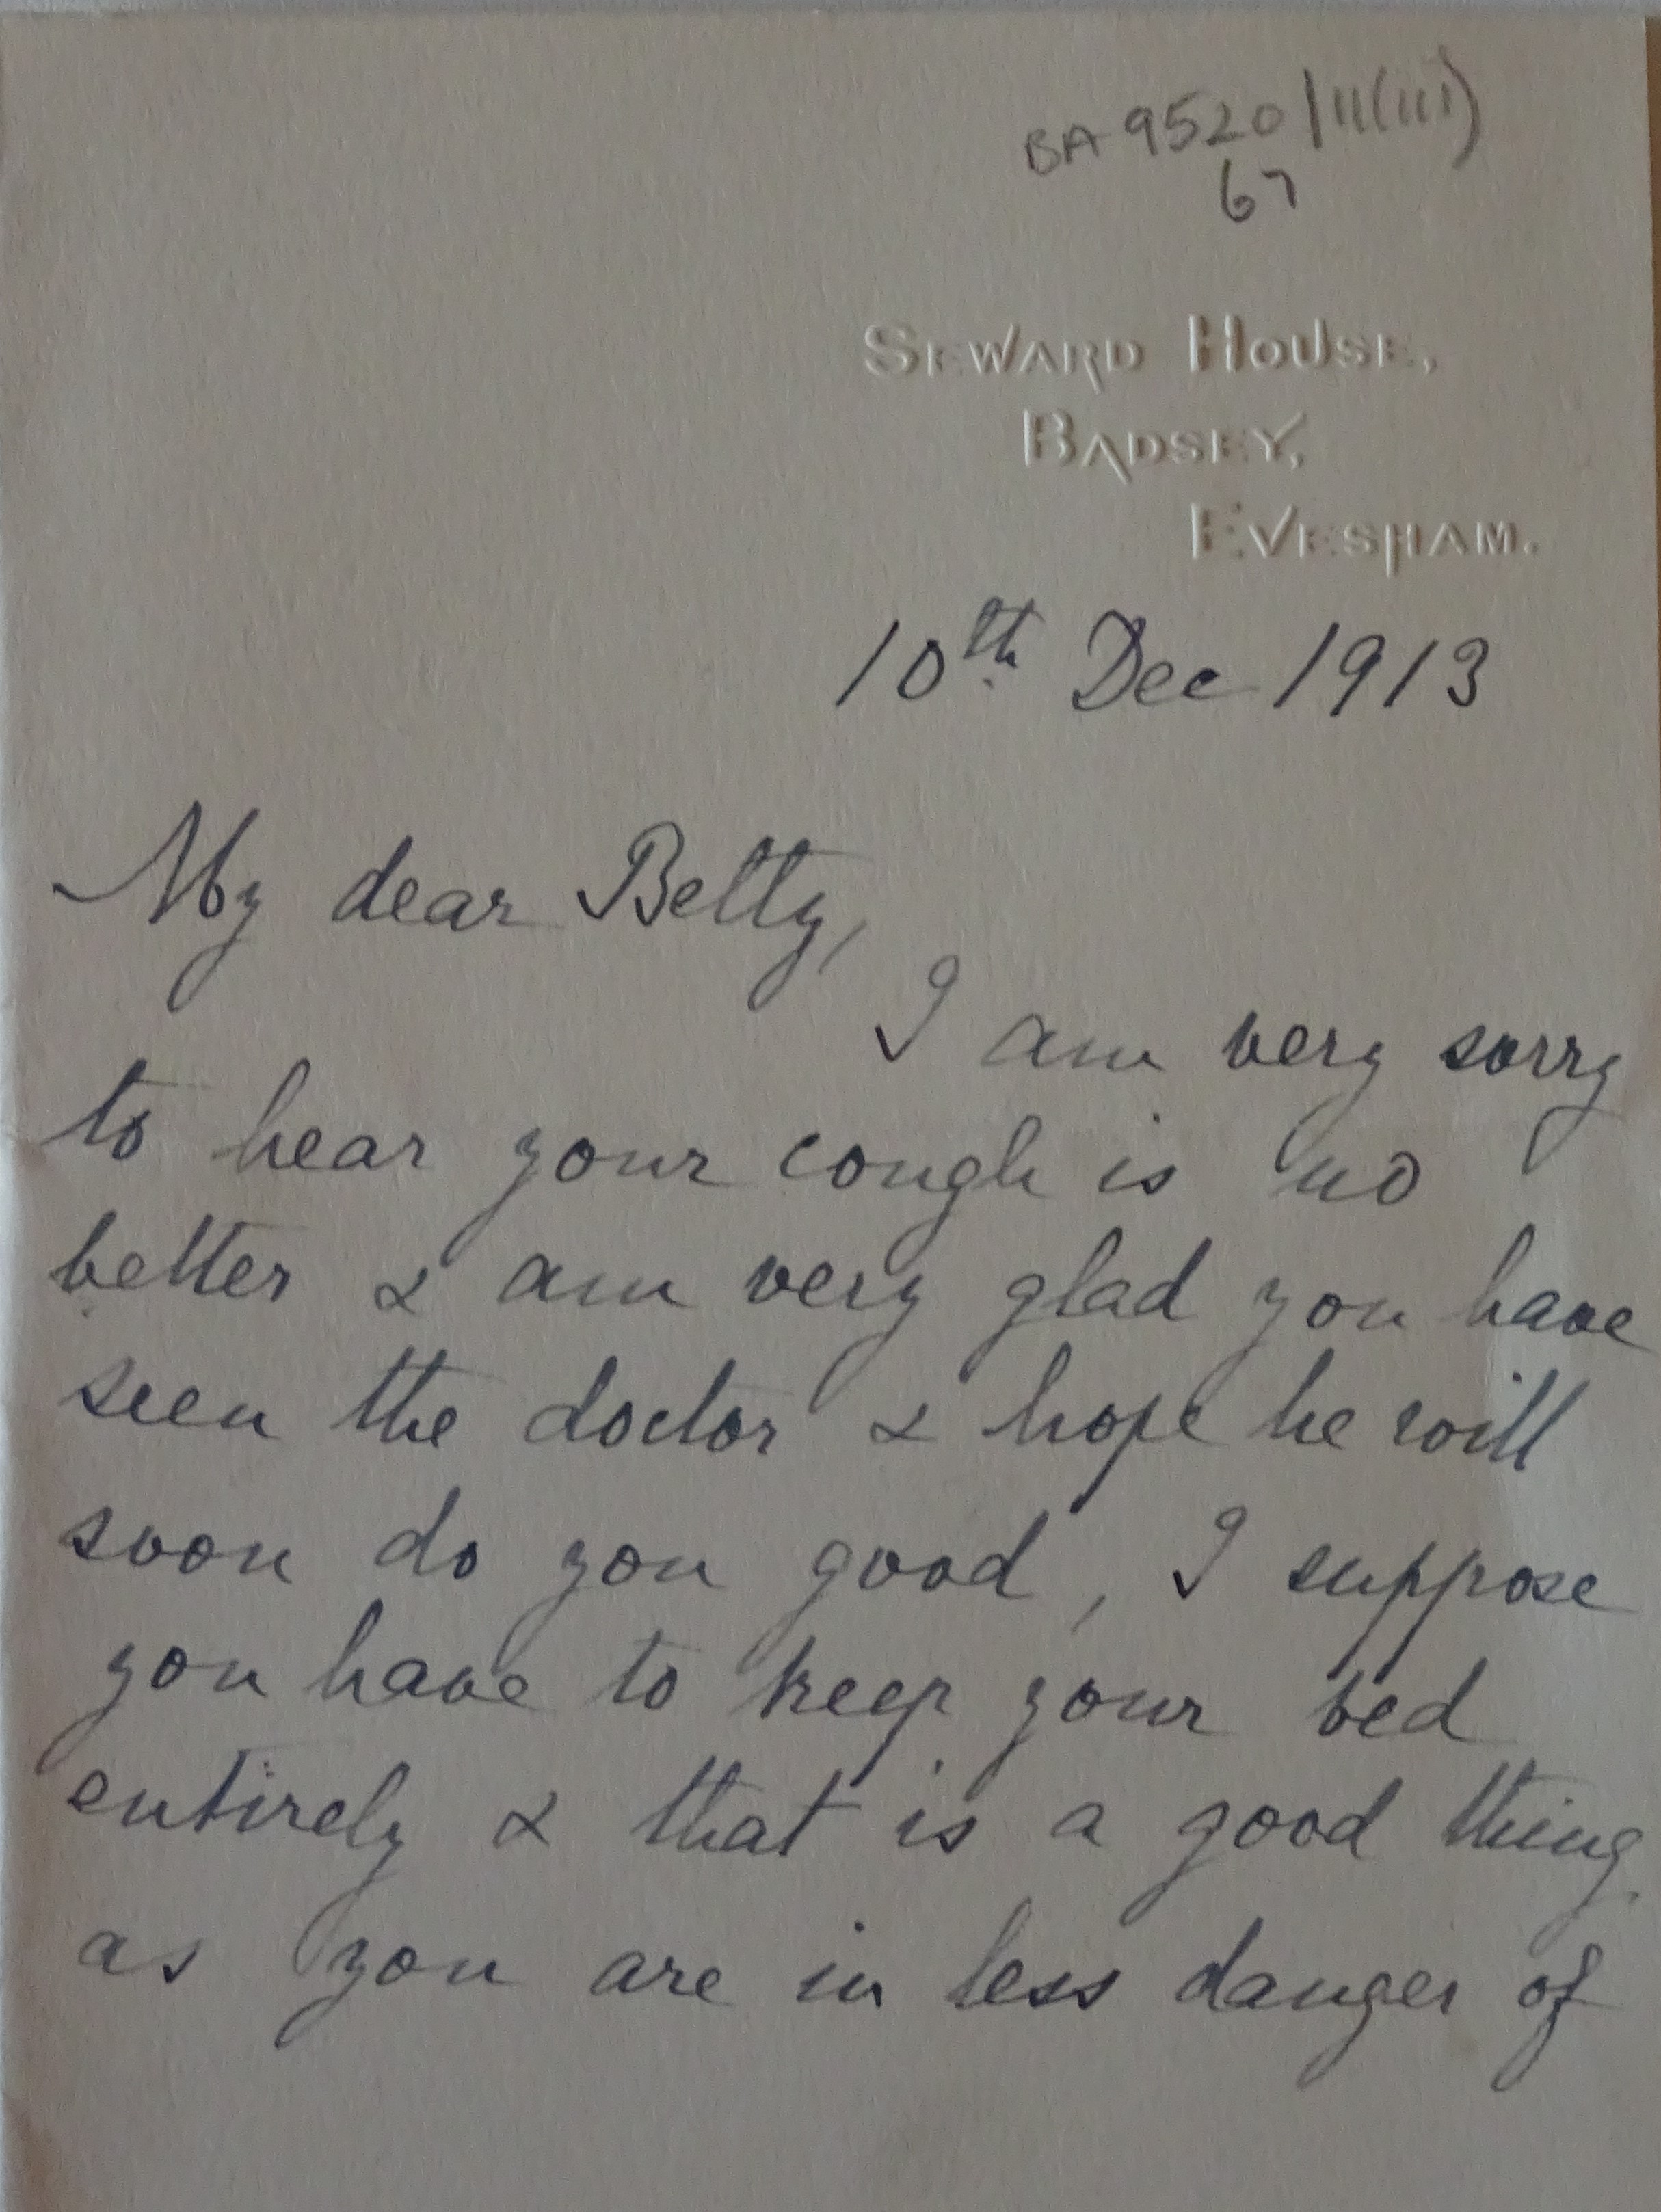 BA 9520/11(iii)
67
SEWARD HOUSE,
BADSEY,
EVESHAM.
10th Dec 1913
My dear Betty,
I am very sorry
to hear your cough is no
better & am very glad you have
seen the doctor & hope he will
soon do you good, I suppose
you have to keep your bed
entirely & that is a good thing
as you are in less danger of